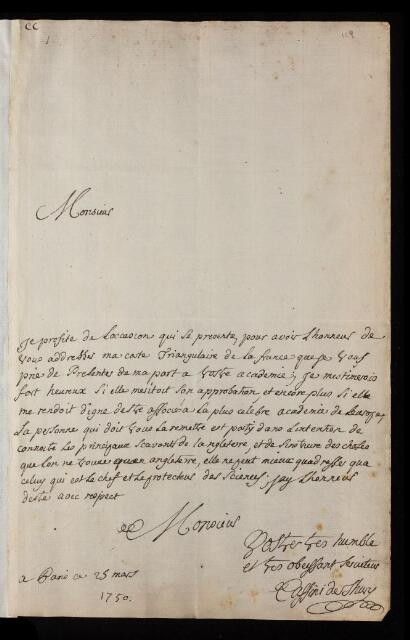 CC
119
Monsieur
Je profite de Loccasion qui se presente, pour avoir Lhonneur de
Vous addresser ma carte Triangulaire de la france que je Vous
prie de Presenter de ma part a Vostre academie; Je mestimerois
fort heureux si elle meritoit son approbation, et encore plus si elle
me rendoit digne destre associé a La plus celebre academie de Leurope,
La personne qui doit Vous La remettre est party dans Lintention de
connoitre Les principaux Scavants de Langleterre, et de sinstruire des choses
que Lon ne trouve quen angleterre, elle ne peut mieux sadresser qua
celuy qui est Le chef et Le protecteur des Sciences, jay Lhonneur
destre avec respect
Monsieur
Vostre tres humble
et tres obeissant serviteur
Cassini de Thury
a Paris ce 25 mars
1750.